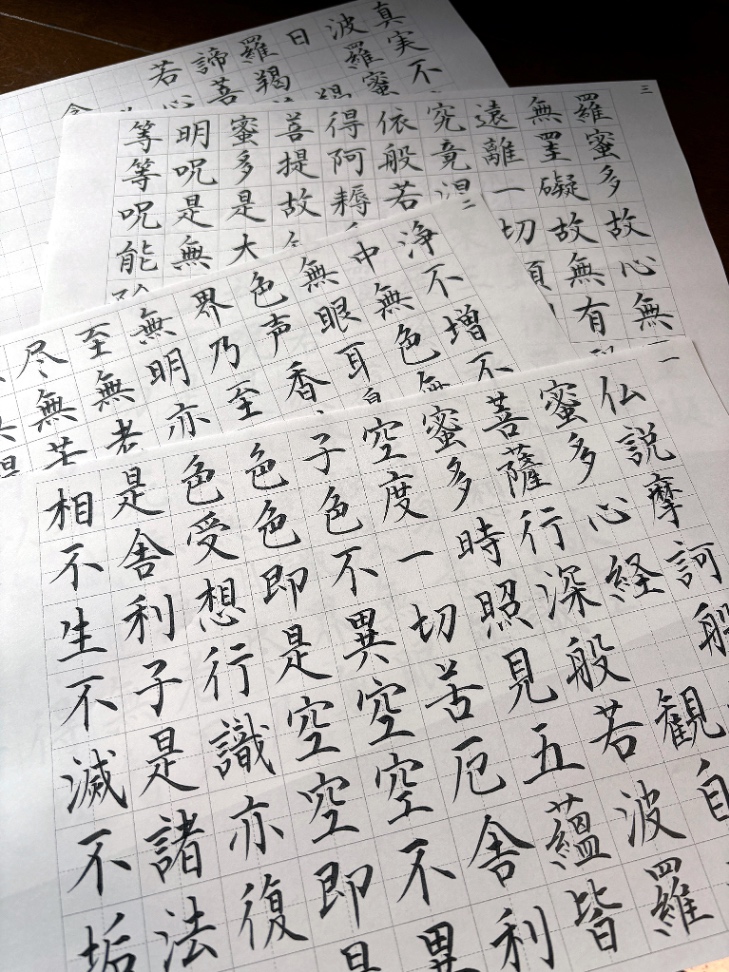 一
仏説摩訶般
蜜多心経 観自
菩薩行深般若波羅
蜜多時照見五蘊皆
空度一切苦厄舎利
子色不異空空不異
色色即是空空即是
色受想行識亦復
是舎利子是諸法
相不生不滅不垢
二
浄不増不
中無色無
無眼耳
色声香
界乃至
無明亦
至無老
尽無苦
三
羅蜜多故心無
無罣礙故無有
遠離一切
究竟涅
依般若
得阿耨
菩提故
蜜多是大
明呪是無
等等呪能
真実不
波羅蜜
日
羅羯
諦菩
若心